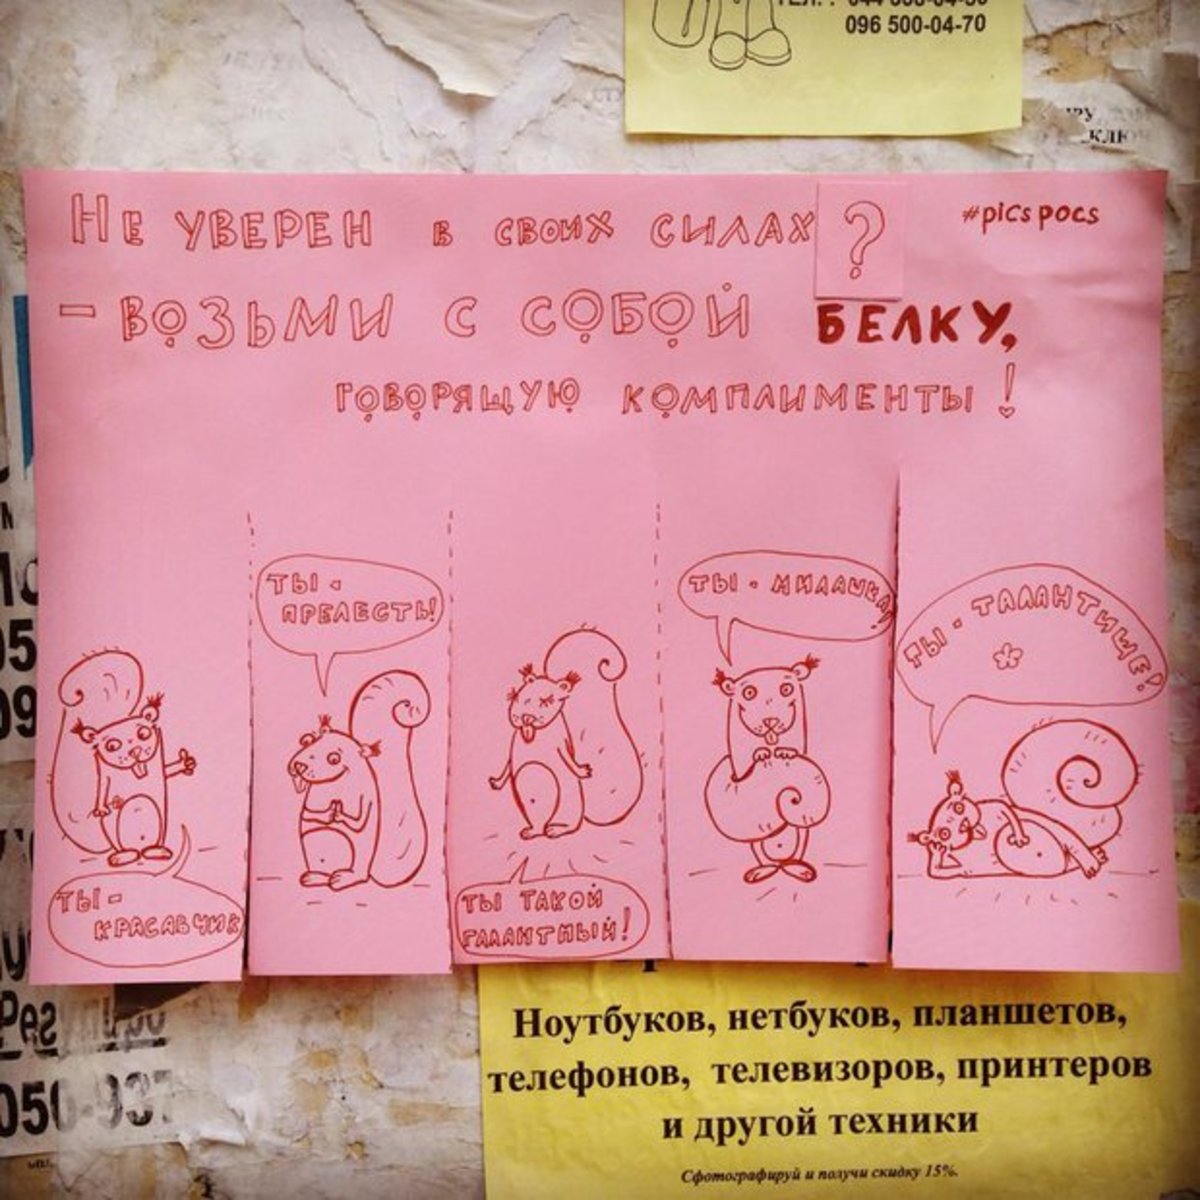 096 500-04-70
Не уверен в своих силах?
#picspocs
– возьми с собой БЕЛКУ,
говорящую комплименты!
ты -
прелесть!
ты - милашка!
ты - талантище!
ты -
красавчик
ты такой
галантный!
Ноутбуков, нетбуков, планшетов,
телефонов, телевизоров, принтеров
и другой техники
Сфотографируй и получи скидку 15%.